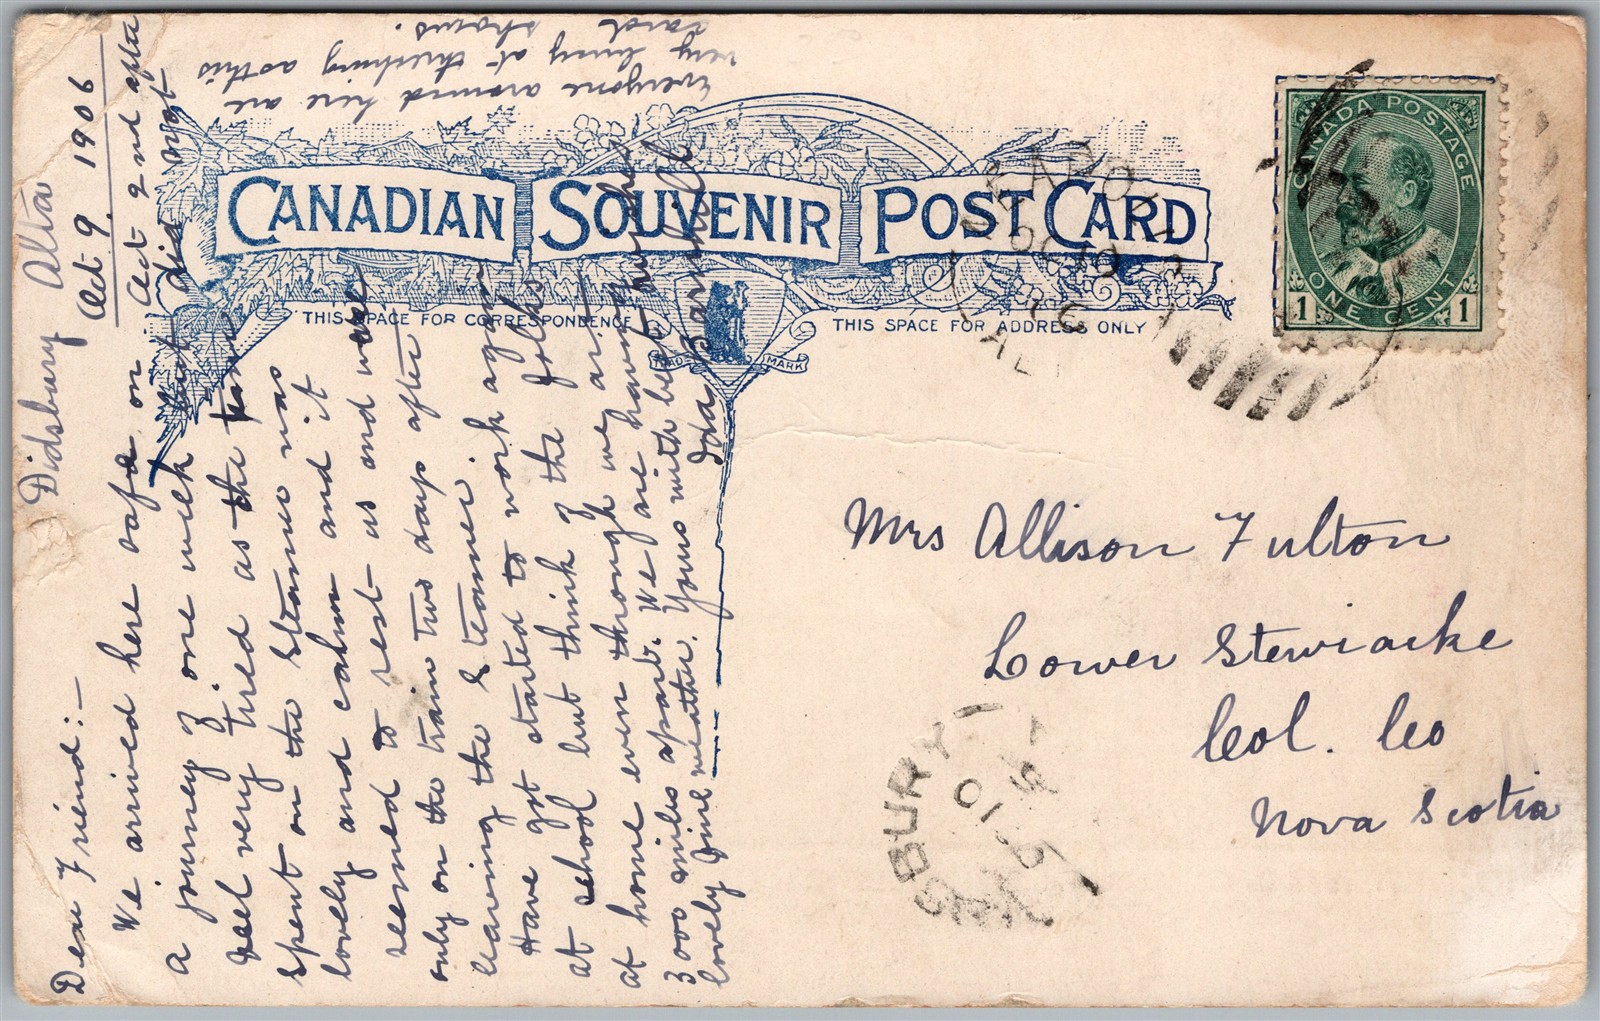 CANADIAN SOUVENIR POST CARD
THIS SPACE FOR CORRESPONDENCE
THIS SPACE FOR ADDRESS ONLY
TRADE MARK
CANADA POSTAGE
1 ONE CENT 1
OC 10
Didsbury Alta
Oct 9, 1906
Dear Friend:-
We arrived here safe on Oct 2nd after
a journey of one week but did not
feel very tired as the time
spent on the steamer was
lovely and calm and it
seemed to rest us and was
only on the train two days after
leaving the steamer.
Have got started to work again
at school but think of the folks
at home even though we are
3000 miles apart. We are having
lovely fine weather. Yours with best wishes
Ida Barnhill
Everyone around here are
very busy at threshing as this
card shows.
Mrs Allison Fulton
Lower Stewiacke
Col. Co
Nova Scotia